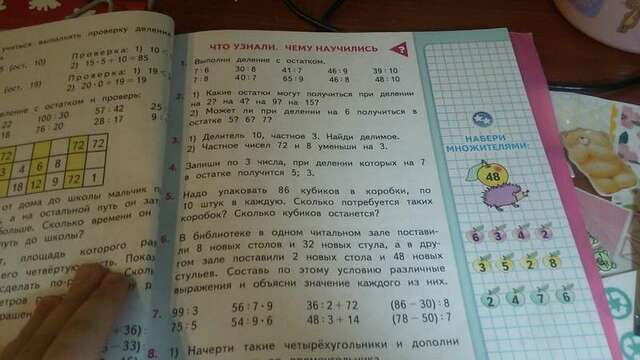 учиться выполнять проверку деления
(ост. 10)
Проверка: 1) 10
2) 15·5+10=85
Проверка: 1) 19
(ост. 19)
2) 20·0+19=19
деление с остатком и проверь:
22 100:30 57:42 25
18 76:20 28:17 9
72 72 72
24 3 4 6 8
18 12 9 72 1
от дома до школы мальчик
а на остальной путь он
Сколько времени он
путь до школы?
площадь которого
его четвёртую часть. Пока
сделать по-
ЧТО УЗНАЛИ. ЧЕМУ НАУЧИЛИСЬ
?
1. Выполни деление с остатком.
7:6 30:8 41:7 46:9 39:10
7:8 40:7 65:9 46:8 48:10
2. 1) Какие остатки могут получиться при делении
на 2? на 4? на 9? на 15?
2) Может ли при делении на 6 получиться в
остатке 5? 6? 7?
3. 1) Делитель 10, частное 3. Найди делимое.
2) Частное чисел 72 и 8 уменьши на 3.
4. Запиши по 3 числа, при делении которых на 7
в остатке получится 5; 3.
5. Надо упаковать 86 кубиков в коробки, по
10 штук в каждую. Сколько потребуется таких
коробок? Сколько кубиков останется?
6. В библиотеке в одном читальном зале постави-
ли 8 новых столов и 32 новых стула, а в дру-
гом зале поставили 2 новых стола и 48 новых
стульев. Составь по этому условию различные
выражения и объясни значение каждого из них.
7. 99:3 56:7·9 36:2+72 (86−30):8
75:5 54:9·6 48:3+14 (78−50):7
8. 1) Начерти такие четырёхугольники и дополни
НАБЕРИ
МНОЖИТЕЛЯМИ:
48
6 3 4 2
3 5 2 8
2 4 7 6
+36):
−33)